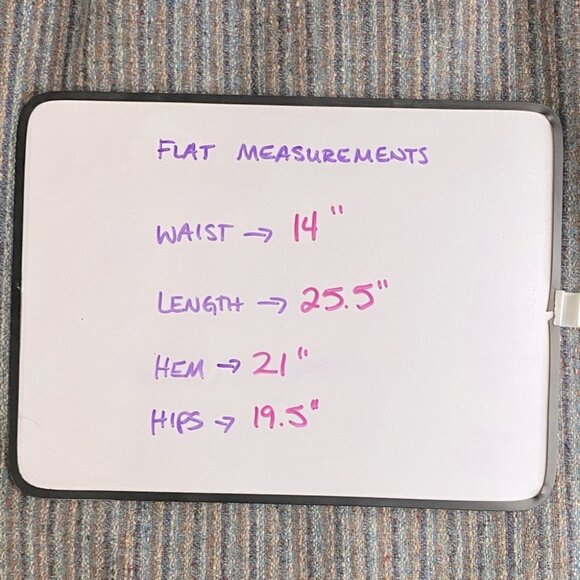 FLAT MEASUREMENTS
WAIST → 14"
LENGTH → 25.5"
HEM → 21"
HIPS → 19.5"